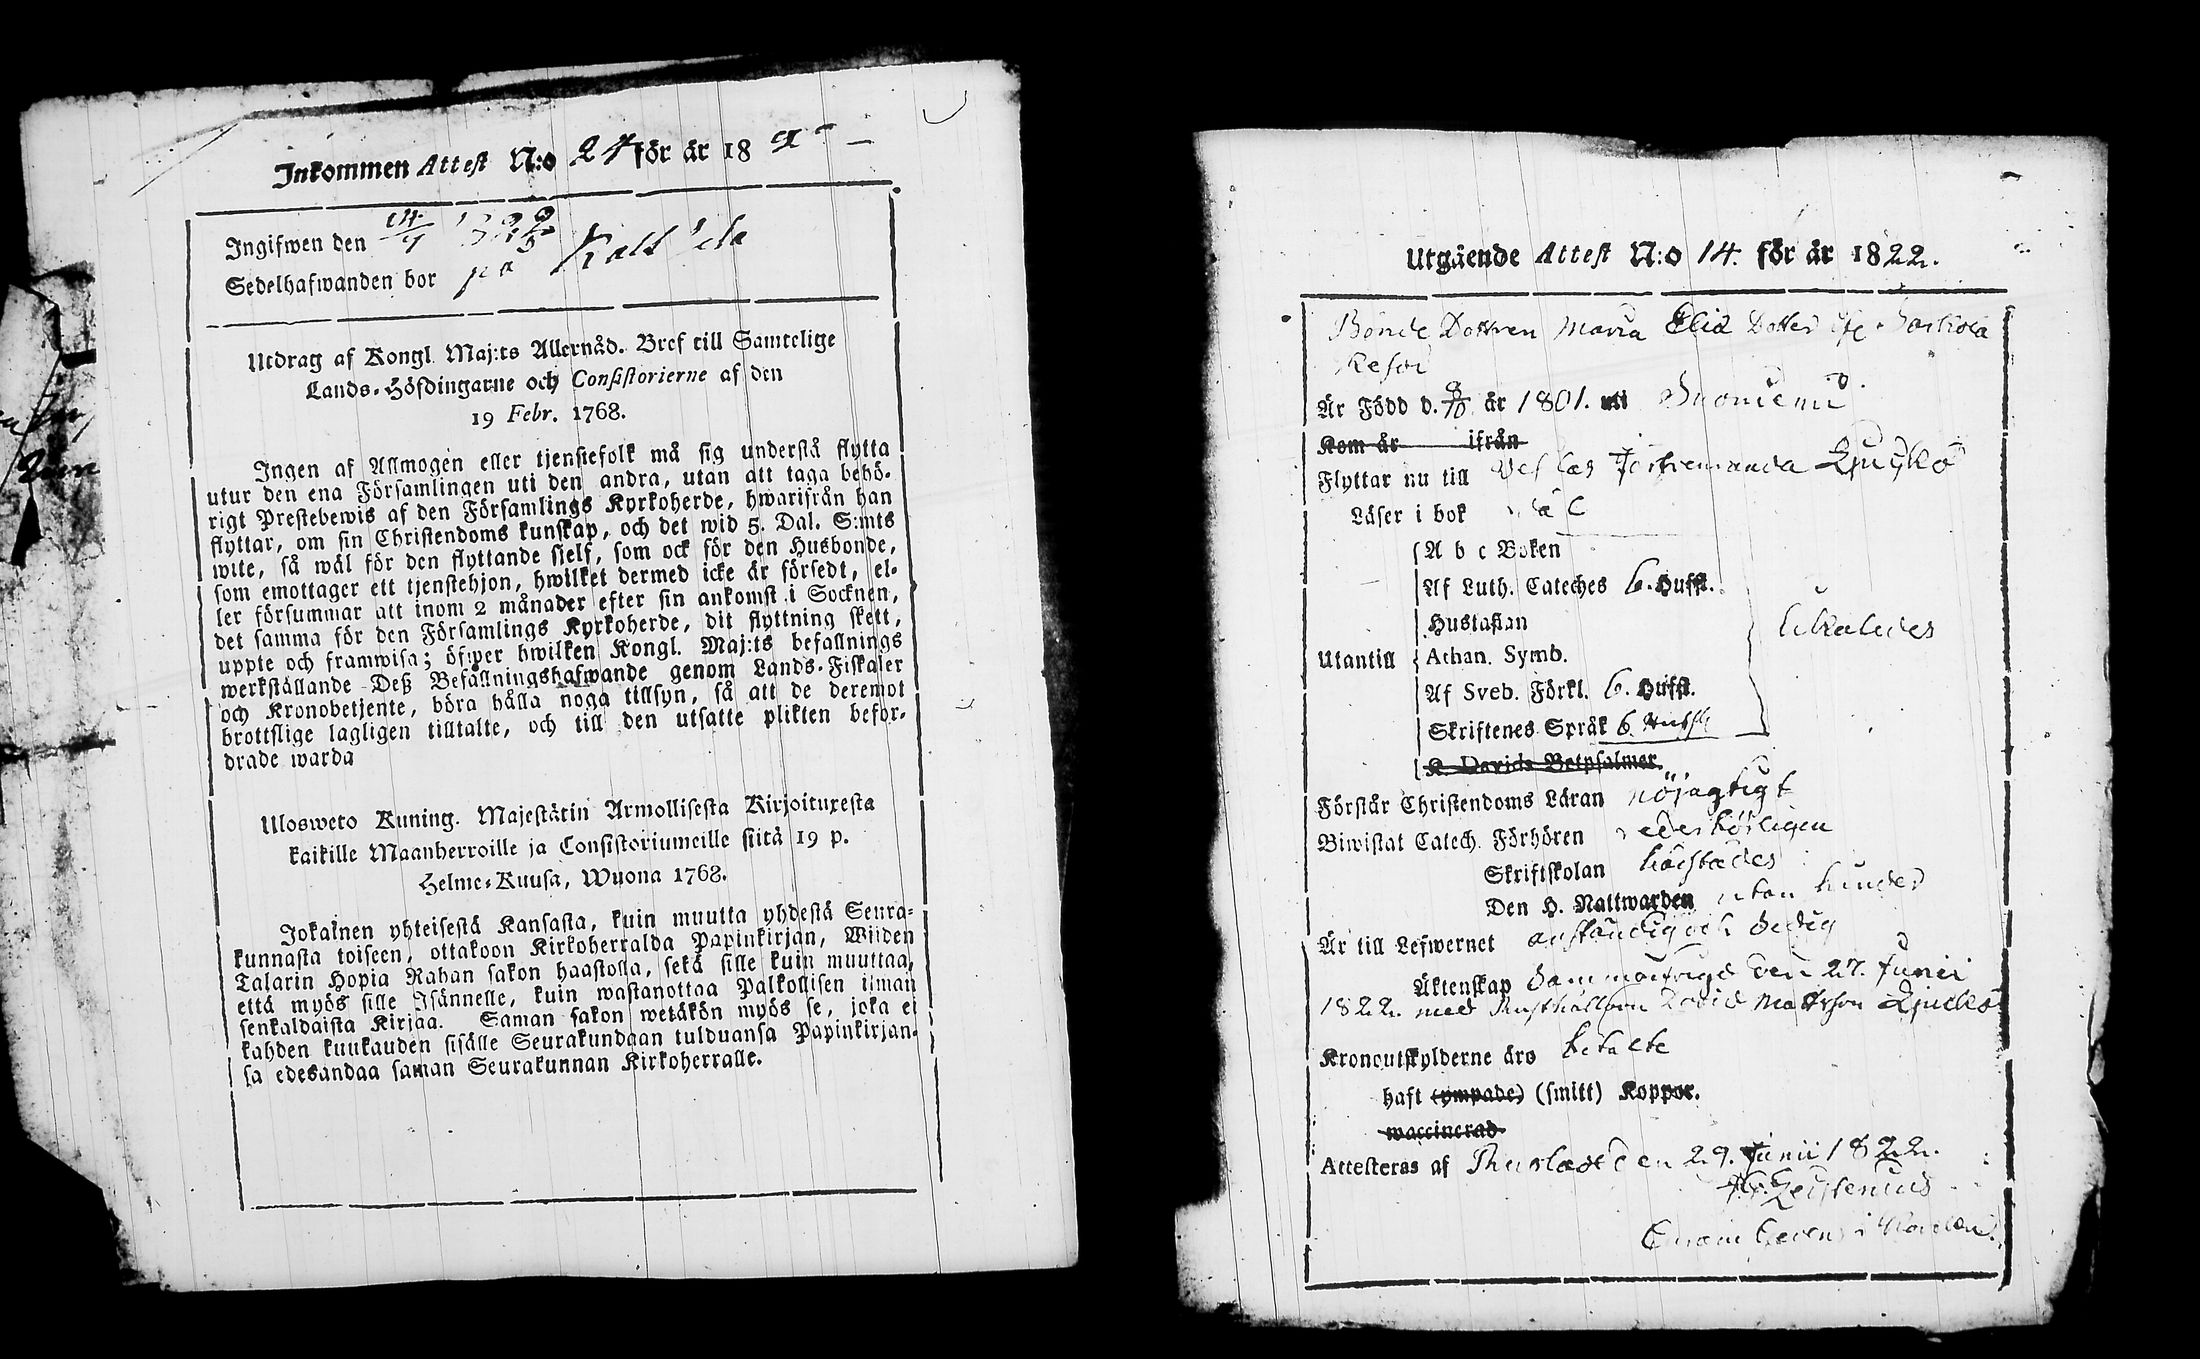 Inkommen Attest N:o 24 för år 18
Ingifwen den
Sedelhafwanden bor på
Utdrag af Kongl. Maj:ts Allernåd. Bref till Samtelige
Lands-Höfdingarne och Consistorierne af den
19 Febr. 1768.
Ingen af Allmogen eller tjenstefolk må sig understå flytta
utur den ena Församlingen uti den andra, utan att taga behö-
rigt Prestebewis af den Församlings Kyrkoherde, hwarifrån han
flyttar, om sin Christendoms kunskap, och det wid 5. Dal. S:mts
wite, så wäl för den flyttande sielf, som ock för den Husbonde,
som emottager ett tjenstehjon, hwilket dermed icke är försedt, el-
ler försummar att inom 2 månader efter sin ankomst i Socknen,
det samma för den Församlings Kyrkoherde, dit flyttning skett,
uppte och framwisa; öfwer hwilken Kongl. Maj:ts befallnings
werkställande Deß Befallningshafwande genom Lands-Fiskaler
och Kronobetjente, böra hålla noga tillsyn, så att de deremot
brottslige lagligen tilltalte, och till den utsatte plikten befor-
drade warda
Ulosweto Kuning. Majestätin Armollisesta Kirjoituxesta
kaikille Maanherroille ja Consistoriumeille siitä 19 p.
Helme-Kuusa, Wuona 1768.
Jokainen yhteisestä Kansasta, kuin muutta yhdestä Seura-
kunnasta toiseen, ottakoon Kirkoherralda Papinkirjan, Wiiden
Talarin Hopia Rahan sakon haastolla, sekä sille kuin muuttaa,
että myös sille Isännelle, kuin wastanottaa Palkollisen ilman
senkaldaista Kirjaa. Saman sakon wetäkön myös se, joka ei
kahden kuukauden sisälle Seurakundaan tulduansa Papinkirjan-
sa edesandaa saman Seurakunnan Kirkoherralle.
Utgående Attest N:o 14. för år 1822.
Bonde Dottren Maria Elia Dotter
Är Född d. 8/10 år 1801. uti Suoniemi
Kom år ifrån
Flyttar nu till
Läser i bok
A b c Boken
Af Luth. Cateches 6. Hufst.
Hustaflan
Utantill
Athan. Symb.
likaledes
Af Sveb. Förkl. 6. Hufst.
Skriftenes Språk 6. Hufst
K. Davids Botpsalmer.
Förstår Christendoms Läran nöjagtigt
Biwistat Catech. Förhören wederbörligen
Skriftskolan
Den H. Nattwarden utan hinder
Är till Lefwernet anständig och sedig
Äktenskap Sammanwigd den 27. Junii
1822. med Rusthållaren David Mattsson
Kronoutskylderne äro betalte
haft (ympade) (smitt) Koppor.
waccinerad
Attesteras af den 29. Junii 1822.